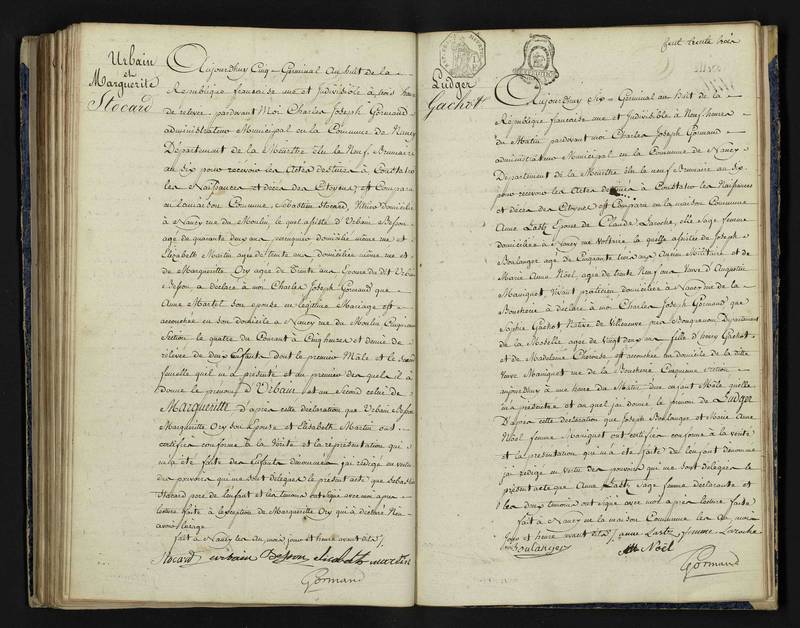 Urbain
et
Marguerite
Stocard
Aujourdhuy Cinq Germinal an huit de la
Republique francaise une et Indivisible à trois heures
de relevee pardevant Moi Charles Joseph Gormand
administrateur Municipal en la Commune de Nancy
Département de la Meurthe Elu le Neuf Brumaire
an six pour recevoir les Actes destinés à Constater
les Naissances et décès des Citoyens, est Comparu
en la maison Commune, Sebastien Stocard, domicilié
à Nancy rue du Moulin, lequel assisté d'Urbain Besson
agé de quarante deux ans perruquier domicilié même rue et
Elisabeth Martin agée de trente ans domiciliée même rue et
de Margueritte Ory agée de Trente ans Epouse dudit Urbain
Besson a déclaré à moi Charles Joseph Gormand que
Anne Martel son épouse en légitime Mariage est
accouchée en son domicile à Nancy rue du Moulin Cinquieme
Section le quatre du Courant à Cinq heures et demie de
relevée de deux Enfants, dont le premier Mâle et le second
femelle qu'il m'a présenté et au premier des quels il à
donné le prénom D'Urbain et au Second celui de
Margueritte D'apres cette déclaration que Urbain Besson
Marguerite Ory son Epouse et Elisabeth Martin ont
certifiée conforme à la Vérité et la représentation qui
m'a été faite des Enfants dénommés j'ai rédigé en vertu
des pouvoirs qui me sont délégués le présent acte que Sebastien
Stocard père de l'enfant et les témoins ont signé avec moi apres
lecture faite à l'exception de Marguerite Ory qui à déclaré Ne
savoir
fait à Nancy les du mois jour et heure avant dits
Stocard urbain Besson elisabeth martin
Gormand
Cent trente trois
Ludger
Gachot
Aujourdhuy Six Germinal an Huit de la
République francaise une et Indivisible à Neuf heures
du Matin pardevant moi Charles Joseph Gormand
administrateur Municipal en la Commune de Nancy
Département de la Meurthe élu le neuf Brumaire an Six
pour recevoir les Actes destinés à Constater les Naissances
et décès des Citoyens est Comparue en la maison Commune
Anne Lastz Epouse de Claude Laroche, elle Sage femme
domiciliée à Nancy rue Voltaire la quelle assistée de Joseph
Boulanger agé de Cinquante trois ans Ancien Militaire et de
Marie Anne Noël agée de trente Neuf ans Veuve d'Augustin
Maniquet, Vivant praticien domiciliée à Nancy rue de la
Boucherie à déclaré à moi Charles Joseph Gormand que
Sophie Gachot Native de Villeneuve près Bouquenom Département
de la Moselle agée de Vingt deux ans fille d'henry Gachot
et de Madelaine est accouchée au domicile de la dite
Veuve Maniquet rue de la Boucherie Cinquieme Section
aujourdhuy à une heure du Matin d'un enfant Mâle quelle
m'a présenté et au quel j'ai donné le prénom de Ludger
D'apres cette déclaration que Joseph Boulanger et Marie Anne
Noël femme Maniquet ont certifiée conforme à la vérité
et la présentation qui m'a été faite de l'enfant dénommé
j'ai rédigé en Vertu des pouvoirs qui me sont délégués le
présent acte que Anne Lastz Sage femme déclarante et
les deux témoins ont signé avec moi apres lecture faite
fait à Nancy en la maison Commune les an mois
jour et heure avant dits anne Lastz femme Laroche
Boulanger MA Noël
Gormand